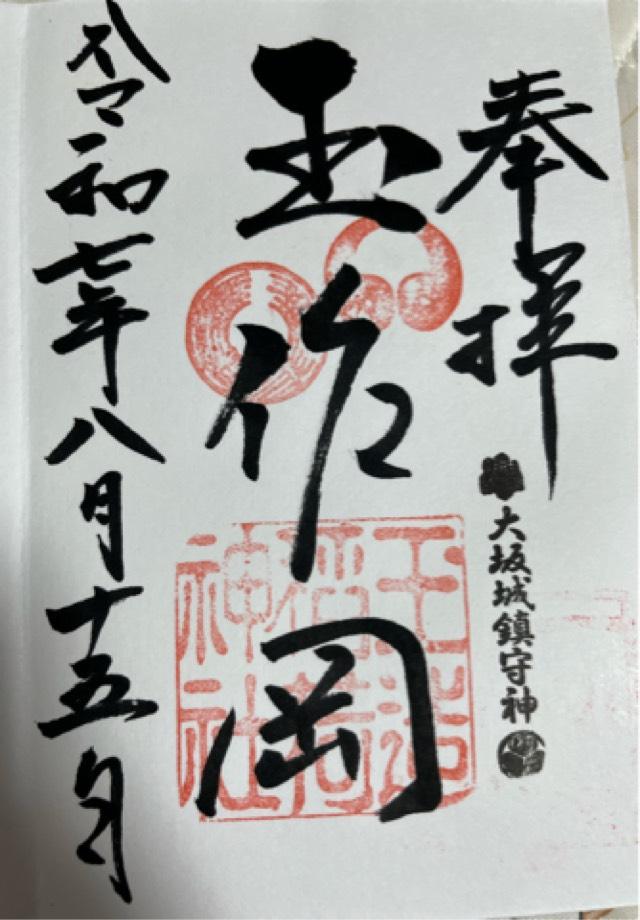 奉拝
大坂城鎮守神
玉作岡
玉造稲荷神社
令和七年八月十五日